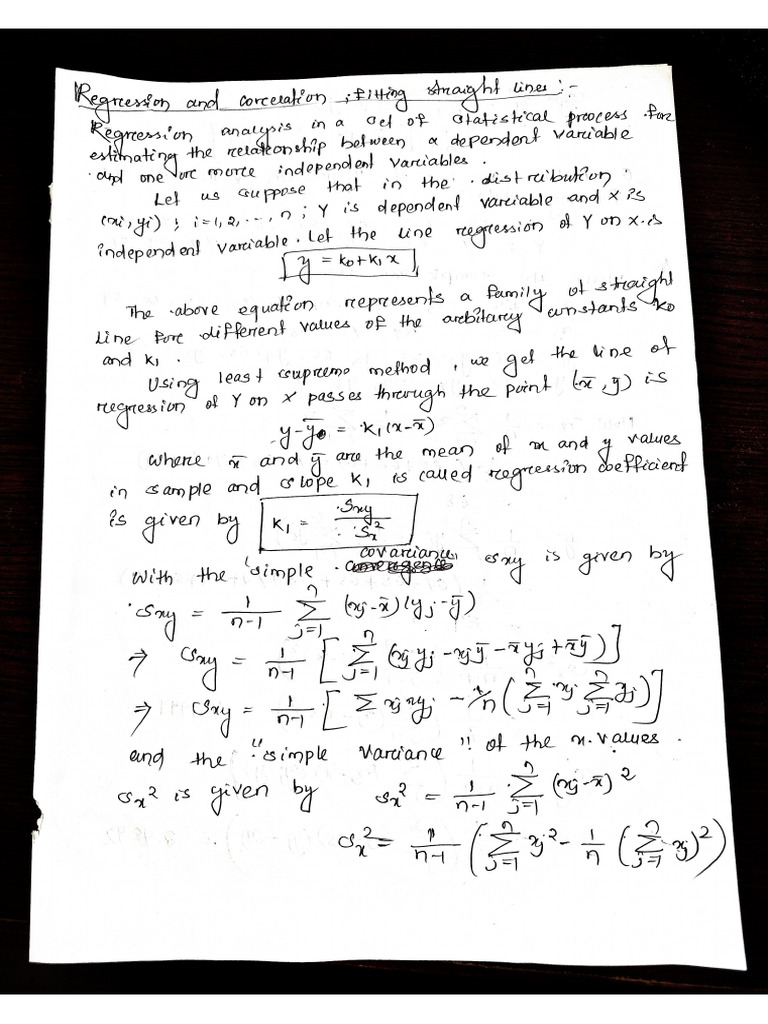 Regression and correlation ; fitting straight lines :-
Regression analysis in a set of statistical process for
estimating the relationship between a dependent variable
and one or more independent variables.
Let us suppose that in the distribution
(xi, yi) ; i = 1, 2, ..., n ; Y is dependent variable and X is
independent variable. Let the line regression of Y on X is
y = k₀ + k₁ x
The above equation represents a family of straight
line for different values of the arbitary constants k₀
and k₁ .
Using least supreme method , we get the line of
regression of Y on X passes through the point (x̄, y) is
y - ȳ = k₁ (x - x̄)
where x̄ and ȳ are the mean of x and y values
in sample and slope k₁ is called regression coefficient
is given by k₁ = Sxy / Sx²
With the "simple covariance" Sxy is given by
Sxy = 1/(n-1) Σ_{j=1}^{n} (xj - x̄) (yj - ȳ)
⇒ Sxy = 1/(n-1) [ Σ_{j=1}^{n} (xj yj - xj ȳ - x̄ yj + x̄ȳ) ]
⇒ Sxy = 1/(n-1) [ Σ xj yj - 1/n ( Σ_{j=1}^{n} xj Σ_{j=1}^{n} yj ) ]
and the "simple variance" of the x-values .
Sx² is given by Sx² = 1/(n-1) Σ_{j=1}^{n} (xj - x̄)²
Sx² = 1/(n-1) ( Σ_{j=1}^{n} xj² - 1/n ( Σ_{j=1}^{n} xj )² )